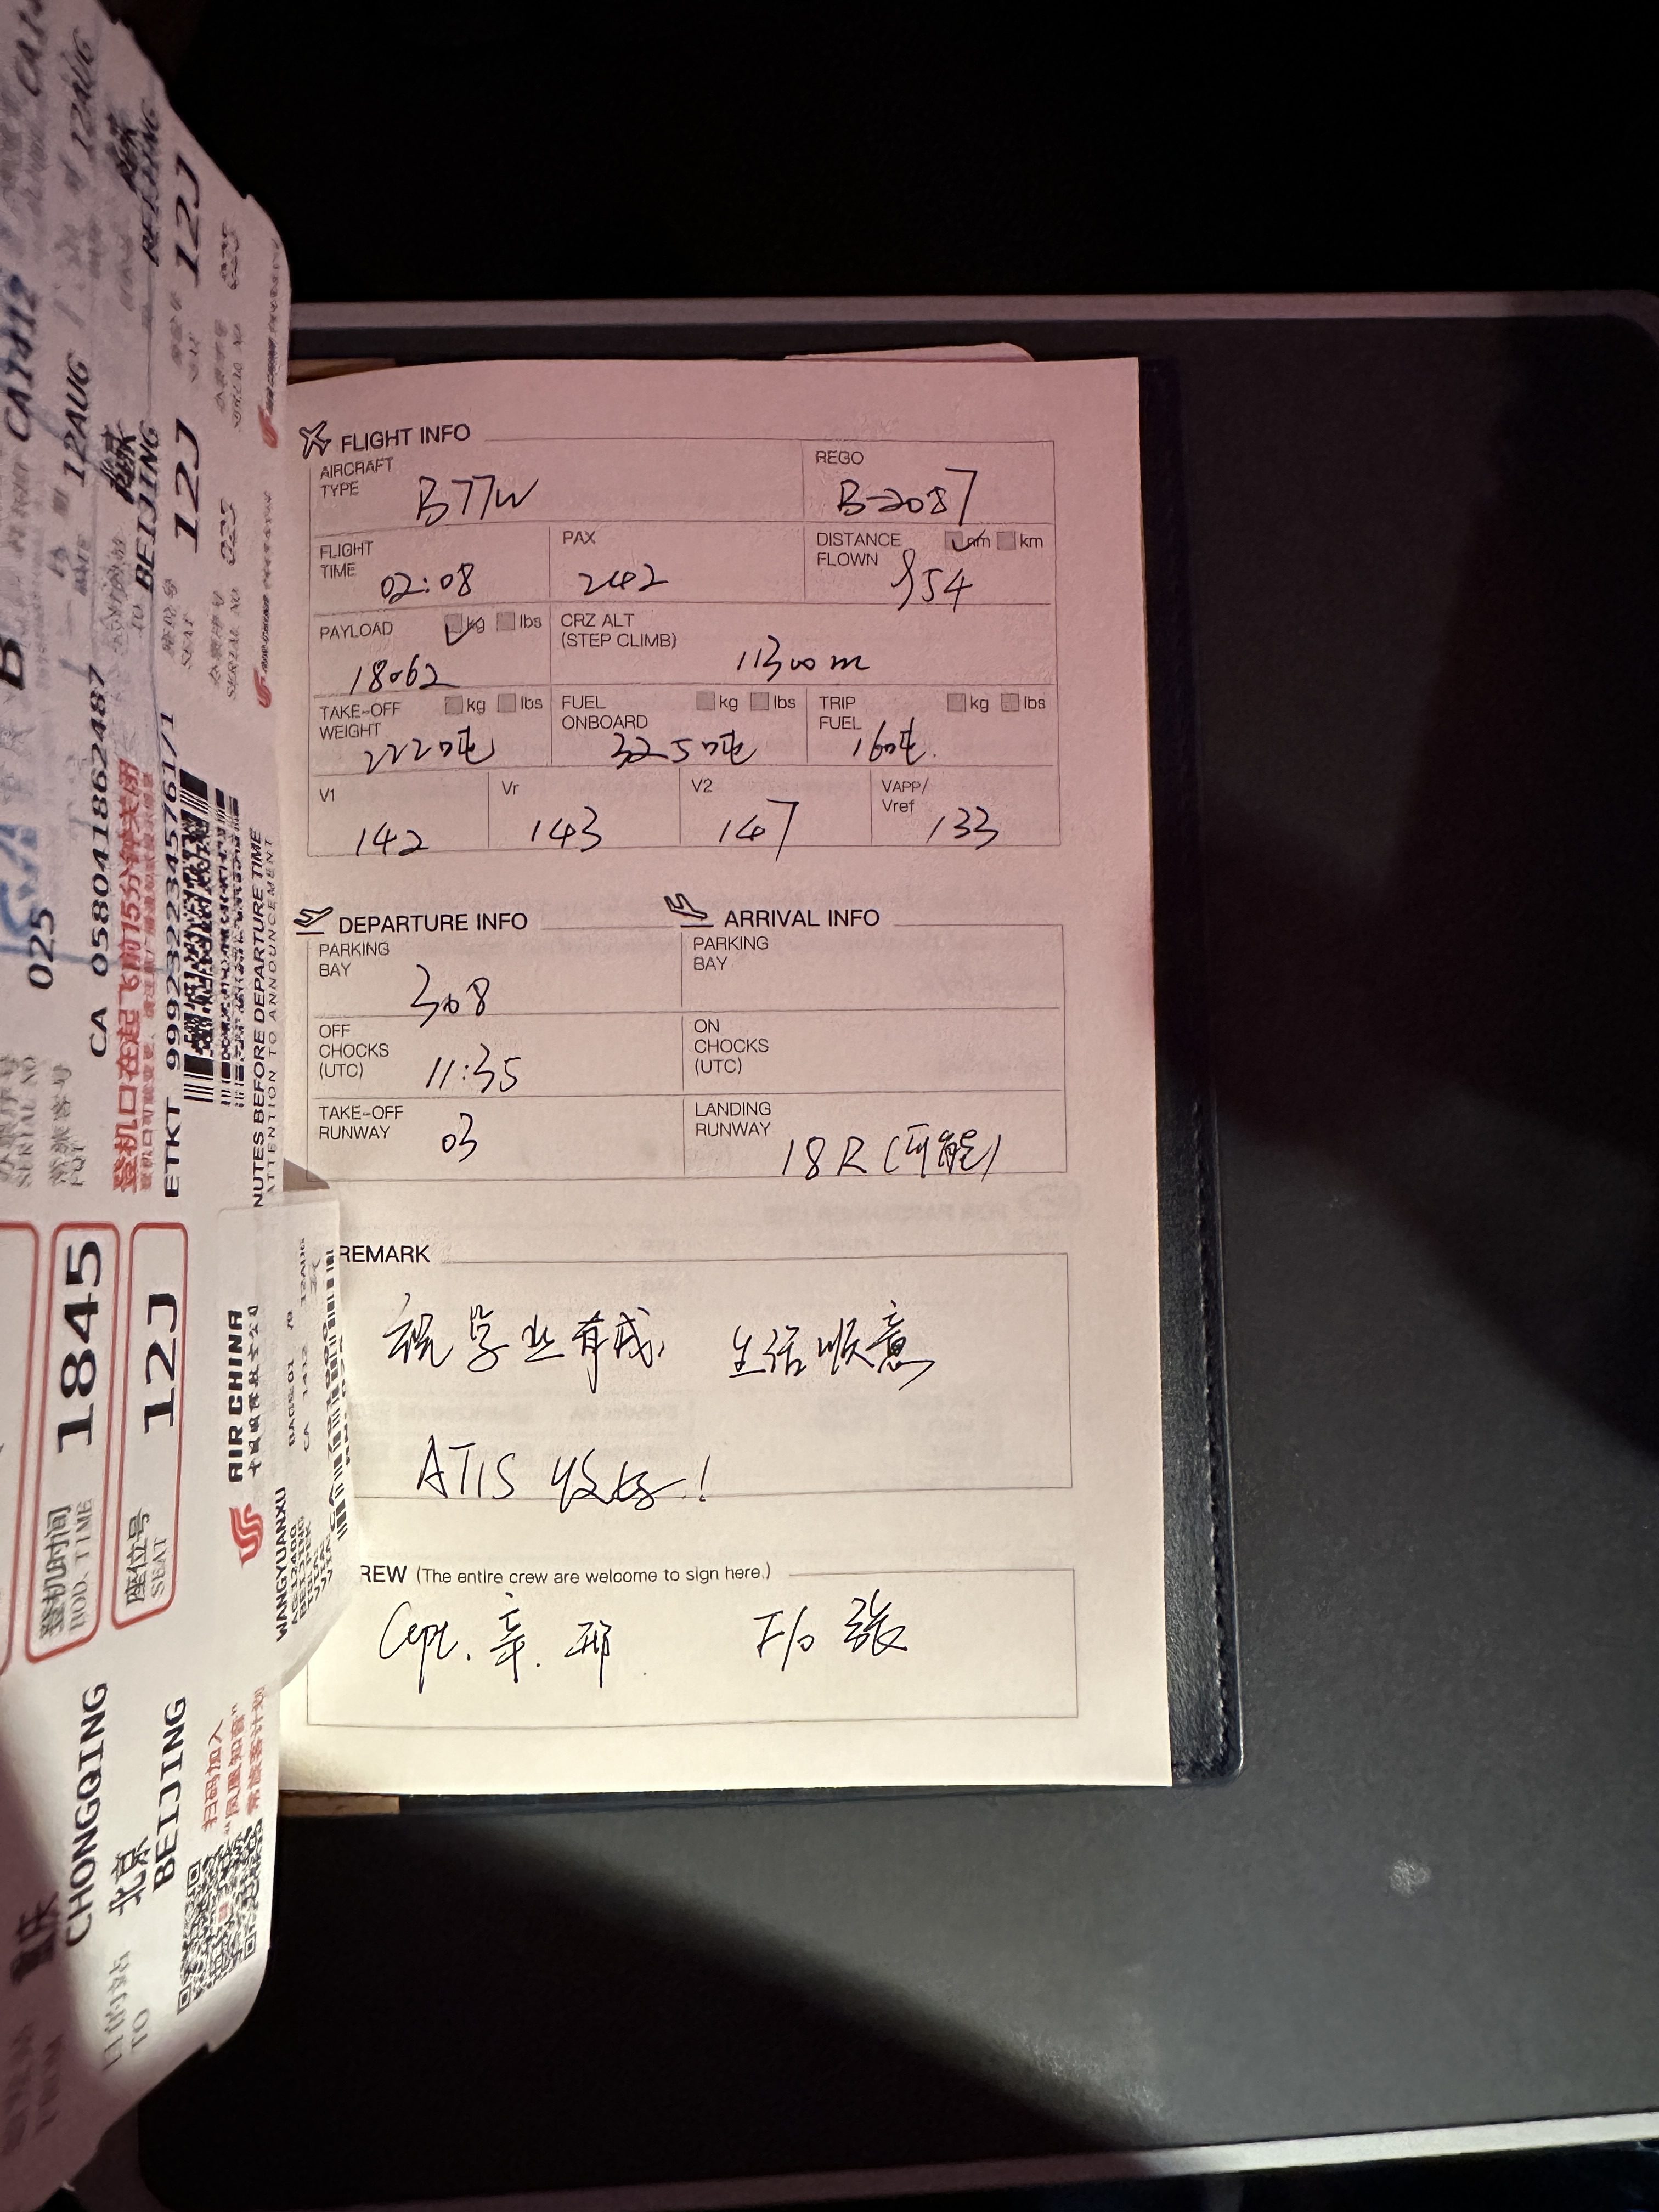 FLIGHT INFO
AIRCRAFT TYPE B77W
REGO B-2087
FLIGHT TIME 02:08
PAX 242
DISTANCE FLOWN nm km 954
PAYLOAD kg lbs 18062
CRZ ALT (STEP CLIMB) 11300m
TAKE-OFF WEIGHT kg lbs 222吨
FUEL ONBOARD kg lbs 32.5吨
TRIP FUEL kg lbs 16吨
V1 142
Vr 143
V2 147
VAPP/Vref 133
DEPARTURE INFO
PARKING BAY 308
OFF CHOCKS (UTC) 11:35
TAKE-OFF RUNWAY 03
ARRIVAL INFO
PARKING BAY
ON CHOCKS (UTC)
LANDING RUNWAY 18R (可能)
REMARK
祝学业有成, 生活顺意
ATIS 收好!
REW (The entire crew are welcome to sign here.)
Capt. 辛. 邢 F/O 张
CA1412
12AUG
北京
BEIJING
12J
座位号
SEAT
SERIAL NO 025
CA 058041862487
登机口在起飞前15分钟关闭
ETKT 9992322345761/1
NUTES BEFORE DEPARTURE TIME
ATTENTION TO ANNOUNCEMENT
登机时间
BOD. TIME
1845
座位号
SEAT
12J
AIR CHINA
WANGYUANXU
CHONGQING
目的站
TO
北京
BEIJING
扫码加入
"凤凰知音"
常旅客计划